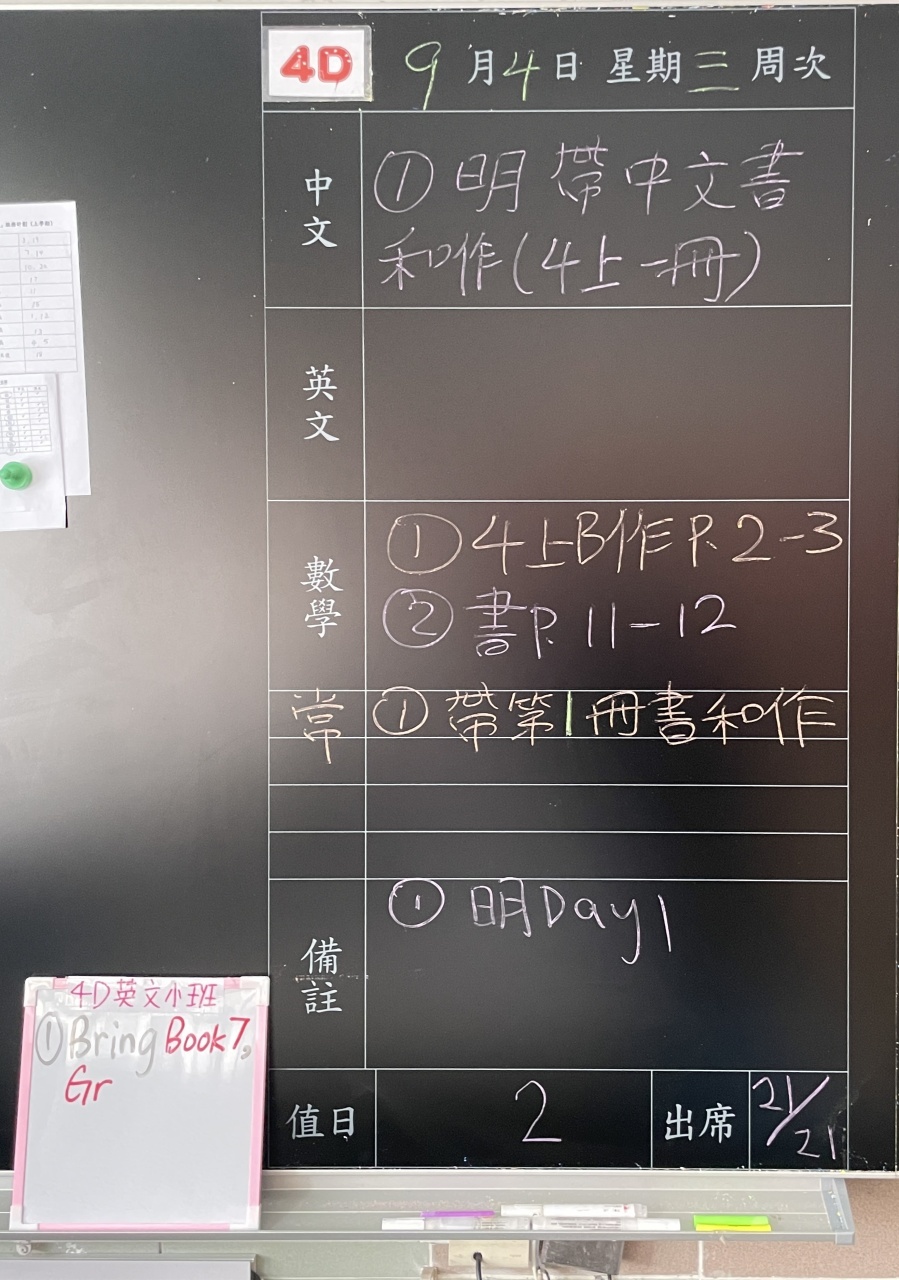 4D 9月4日 星期三 周次
中文 ① 明帶中文書
和作(4上一冊)
英文
數學 ① 4上B作 P. 2-3
② 書P. 11-12
常 ① 帶第1冊書和作
備註 ① 明Day 1
值日 2 出席 21/21
4D英文小班
① Bring Book 7,
Gr